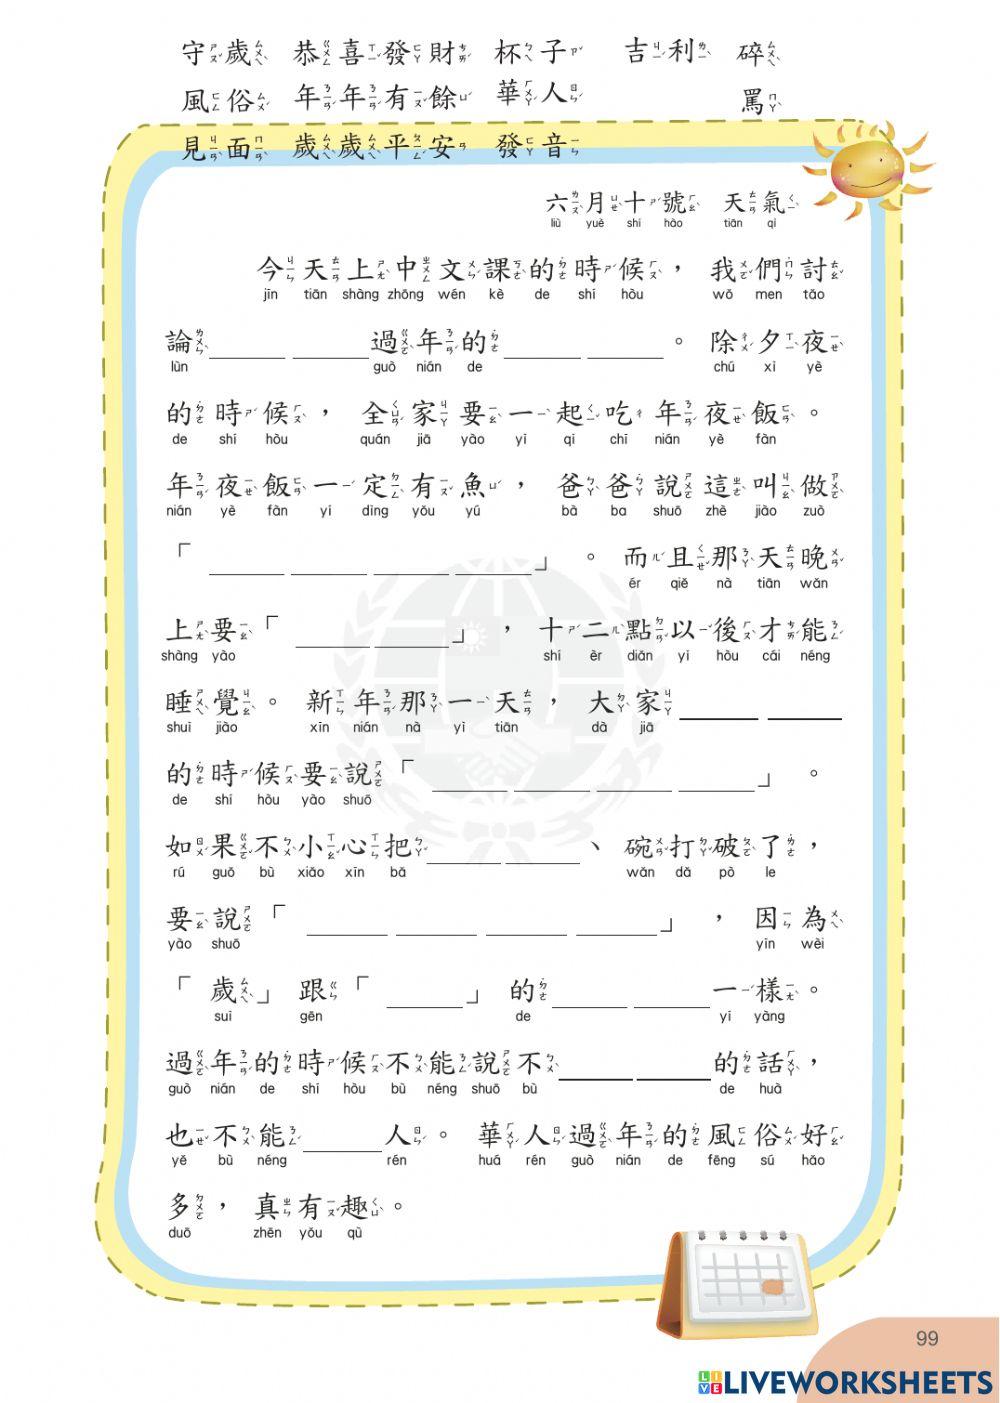 守歲 恭喜發財 杯子 吉利 碎
風俗 年年有餘 華人 罵
見面 歲歲平安 發音
六月十號 天氣
liù yuè shí hào tiān qì
今天上中文課的時候，我們討
jīn tiān shàng zhōng wén kè de shí hòu wǒ men tǎo
論____ ____過年的____ ____。除夕夜
lùn guò nián de chú xì yè
的時候，全家要一起吃年夜飯。
de shí hòu quán jiā yào yì qǐ chī nián yè fàn
年夜飯一定有魚，爸爸說這叫做
nián yè fàn yí dìng yǒu yú bà ba shuō zhè jiào zuò
「____ ____ ____ ____」。而且那天晚
ér qiě nà tiān wǎn
上要「____ ____」，十二點以後才能
shàng yào shí èr diǎn yǐ hòu cái néng
睡覺。新年那一天，大家____ ____
shuì jiào xīn nián nà yì tiān dà jiā
的時候要說「____ ____ ____ ____」。
de shí hòu yào shuō
如果不小心把____ ____、碗打破了，
rú guǒ bù xiǎo xīn bǎ wǎn dǎ pò le
要說「____ ____ ____ ____」，因為
yào shuō yīn wèi
「歲」跟「____」的____ ____一樣。
suì gēn de yí yàng
過年的時候不能說不____ ____的話，
guò nián de shí hòu bù néng shuō bù de huà
也不能____人。華人過年的風俗好
yě bù néng rén huá rén guò nián de fēng sú hǎo
多，真有趣。
duō zhēn yǒu qù
99
LIVE LIVEWORKSHEETS